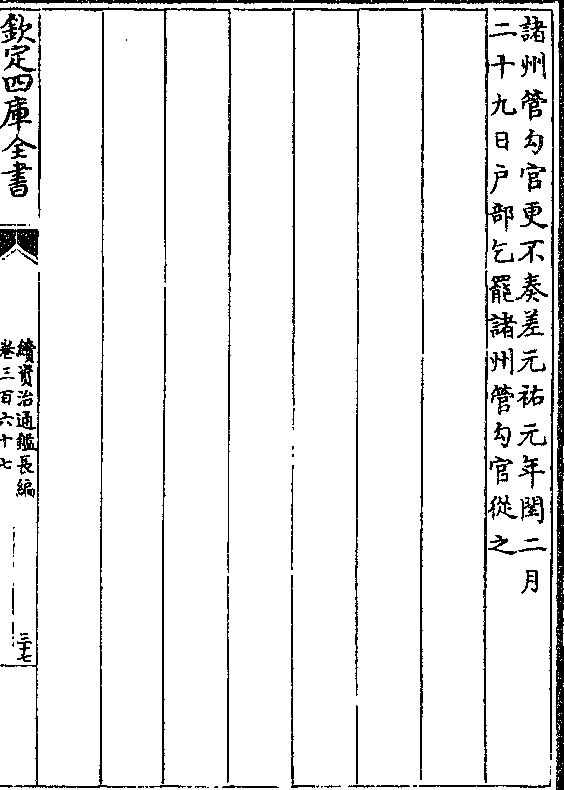 諸州管勾官更不奏差元祐元年閏二月
二十九日户部乞罷諸州管勾官從之
欽定四庫全書
續資治通鑑長編
卷三百六十七
三十七